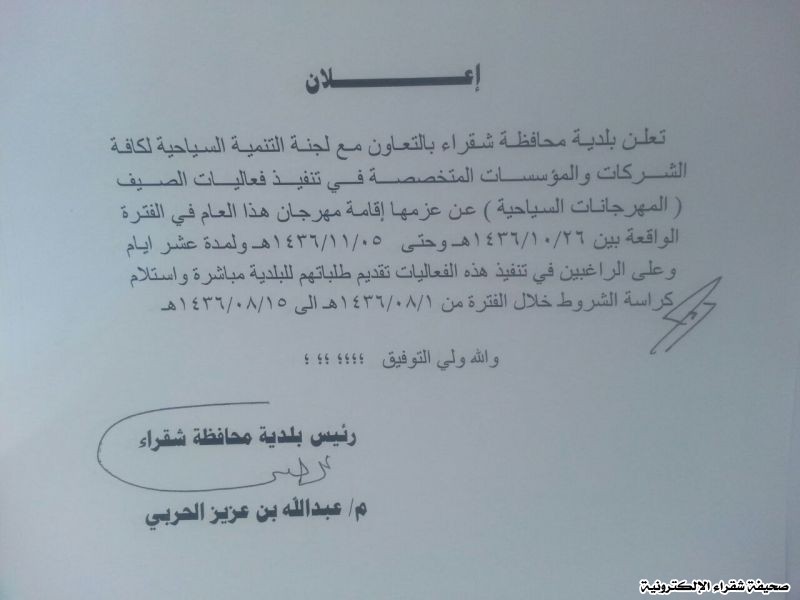 إعـــــــــــــلان
تعلن بلدية محافظة شقراء بالتعاون مع لجنة التنمية السياحية لكافة
الشركات والمؤسسات المتخصصة في تنفيذ فعاليات الصيف
( المهرجانات السياحية ) عن عزمها إقامة مهرجان هذا العام في الفترة
الواقعة بين ١٤٣٦/١٠/٢٦هـ وحتى ١٤٣٦/١١/٠٥هـ ولمدة عشر ايام
وعلى الراغبين في تنفيذ هذه الفعاليات تقديم طلباتهم للبلدية مباشرة واستلام
كراسة الشروط خلال الفترة من ١٤٣٦/٠٨/١هـ الى ١٤٣٦/٠٨/١٥هـ
والله ولي التوفيق ؛؛؛؛ ؛؛ ؛
رئيس بلدية محافظة شقراء
م/ عبدالله بن عزيز الحربي
صحيفة شقراء الإلكترونية